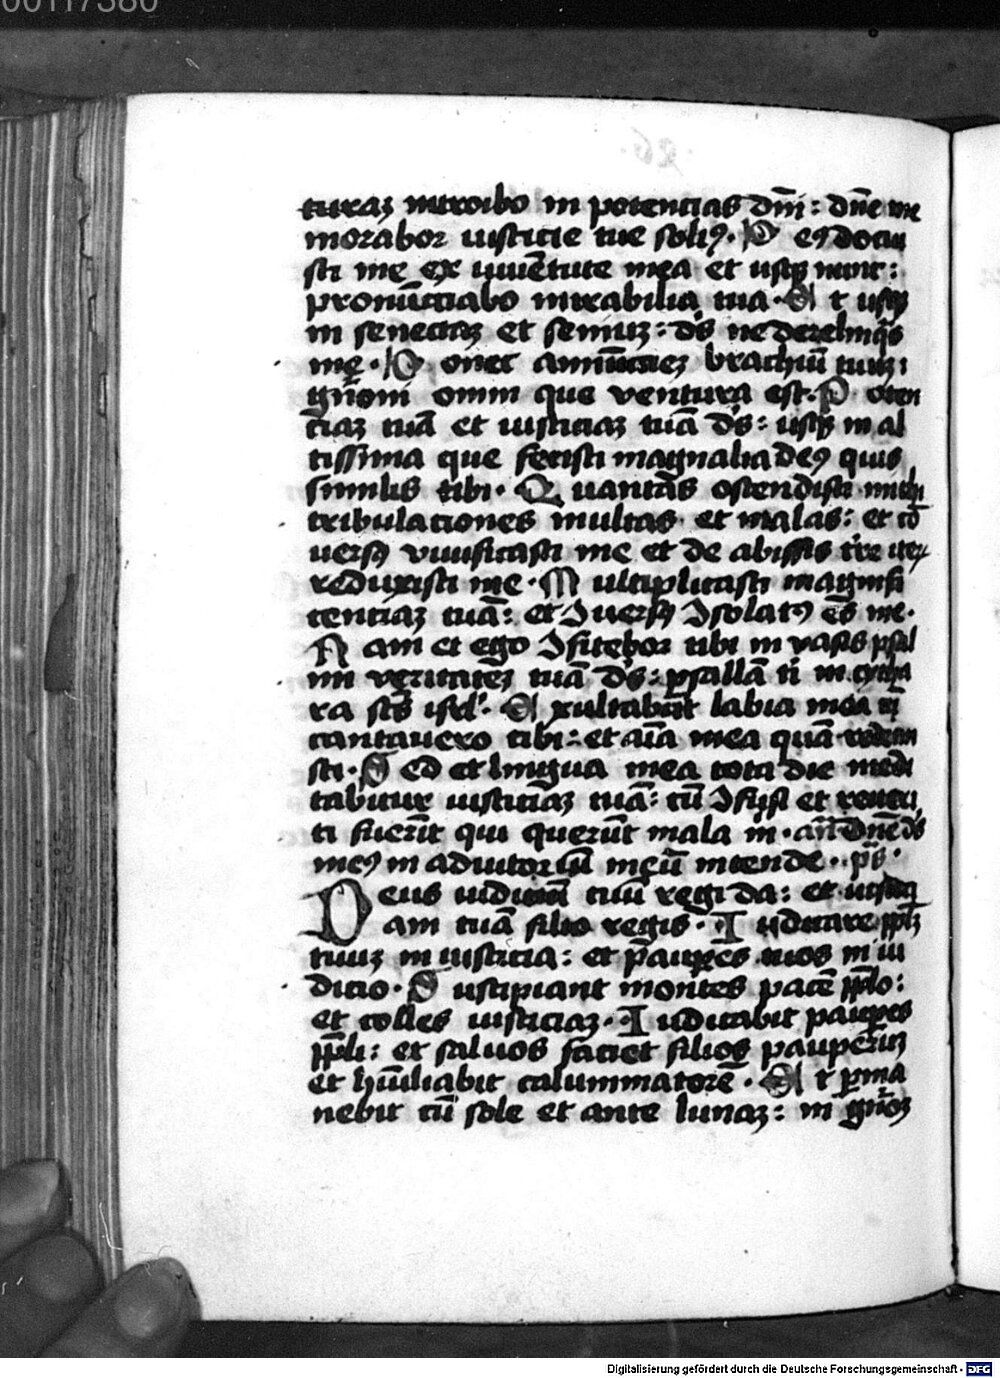 00117380
turaz introibo in potentias dn̄i : dn̄e me
morabor iusticie tue soliꝰ · D eꝰ docui
sti me ex iuuētute mea et usqꝫ nunc :
pronūctiabo mirabilia tua · E t usqꝫ
in senectaz et seniuz : ds̄ ne derelinqͥs
me · D onec annūctiez brachiū tuuz :
gn̄oni omni que ventura est · P oten
ciaz tuā et iusticiaz tuā ds̄ : usqꝫ in al
tissima que fecisti magnalia deꝰ quis
similis tibi · Q uantas ostendisti michi
tribulationes multas et malas : et cō
uersꝰ viuificasti me et de abissis tr̄e iteꝝ
reduxisti me · M ultiplicasti magnifi
centiaz tuā : et ꝯuersꝰ ꝯsolatꝰ es me ·
N am et ego ꝯfitebor tibi in vasis psal
mi veritatez tuā ds̄ : psallā ti in cytha
ra scs̄ isrl̄ · E xultabūt labia mea cū
cantauero tibi : et aīa mea quā redemi
sti · S ed et lingua mea tota die medi
tabitur iusticiaz tuā : cū ꝯfusi et reueri
ti fuerīt qui querūt mala m̄ · an̄ Dn̄e ds̄
meꝰ in adiutoriū meū intende · ps̄ ·
D eus iudiciū tuū regi da : et iustici
am tuā filio regis · I udicare ppl̄z
tuuz in iusticia : et pauperes tuos in iu
dicio · S uscipiant montes pacē pplo :
et colles iusticiaz · I udicabit pauperes
ppl̄i : et saluos faciet filios pauperuz
et hūiliabit calumniatorē · E t ꝑma
nebit cū sole et ante lunaz : in gn̄oz
Digitalisierung gefördert durch die Deutsche Forschungsgemeinschaft - DFG